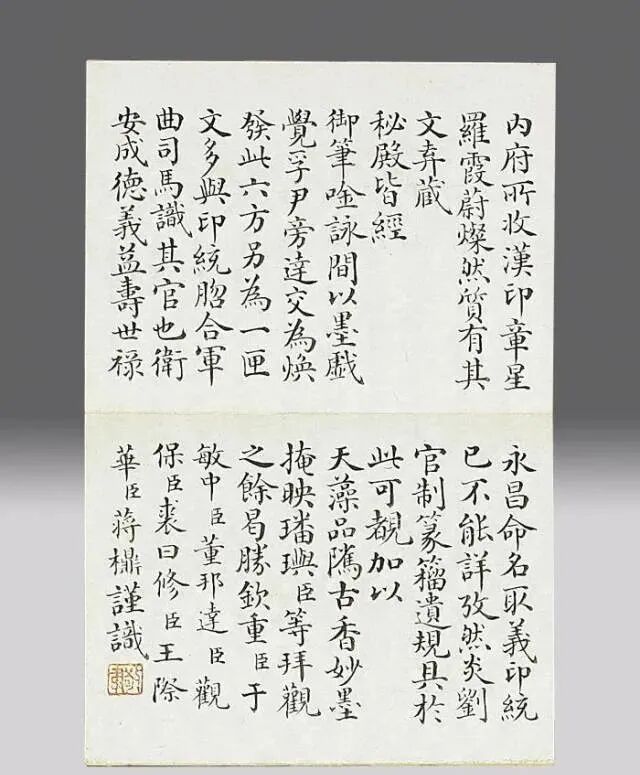 內府所收漢印章星
羅霞蔚燦然質有其
文弆藏
秘殿皆經
御筆唫詠間以墨戲
覺孚尹旁達交為煥
發此六方另為一匣
文多與印統脗合軍
曲司馬識其官也衛
安成德義益壽世祿
永昌命名取義印統
已不能詳攷然炎劉
官制篆籀遺規具於
此可覩加以
天藻品隲古香妙墨
掩映璠璵臣等拜觀
之餘曷勝欽重臣于
敏中臣董邦達臣觀
保臣裘曰修臣王際
華臣蔣謹識